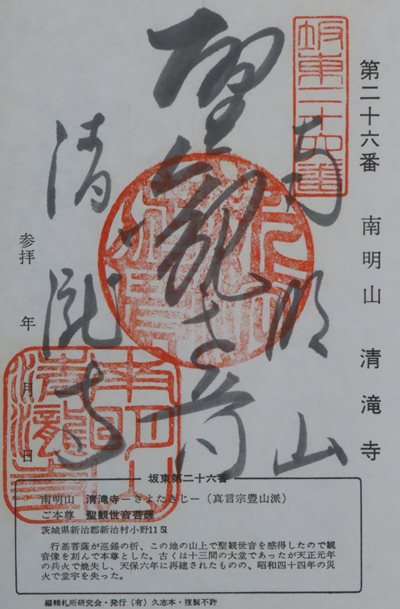 坂東二十六番
第二十六番 南明山 清滝寺
南明山
聖観世音
清瀧寺
参拝 年 月 日
坂東第二十六番
南明山 清滝寺ーきよたきじー(真言宗豊山派)
ご本尊 聖観世音菩薩
茨城県新治郡新治村小野1151
行基菩薩が巡錫の折、この地の山上で聖観世音を感得したので観
音像を刻んで本尊とした。古くは十三間の大堂であったが天正元年
の兵火で焼失し、天保六年に再建されたものの、昭和四十四年の災
火で堂宇を失った。
編輯札所研究会・発行(有)久志本・複製不許